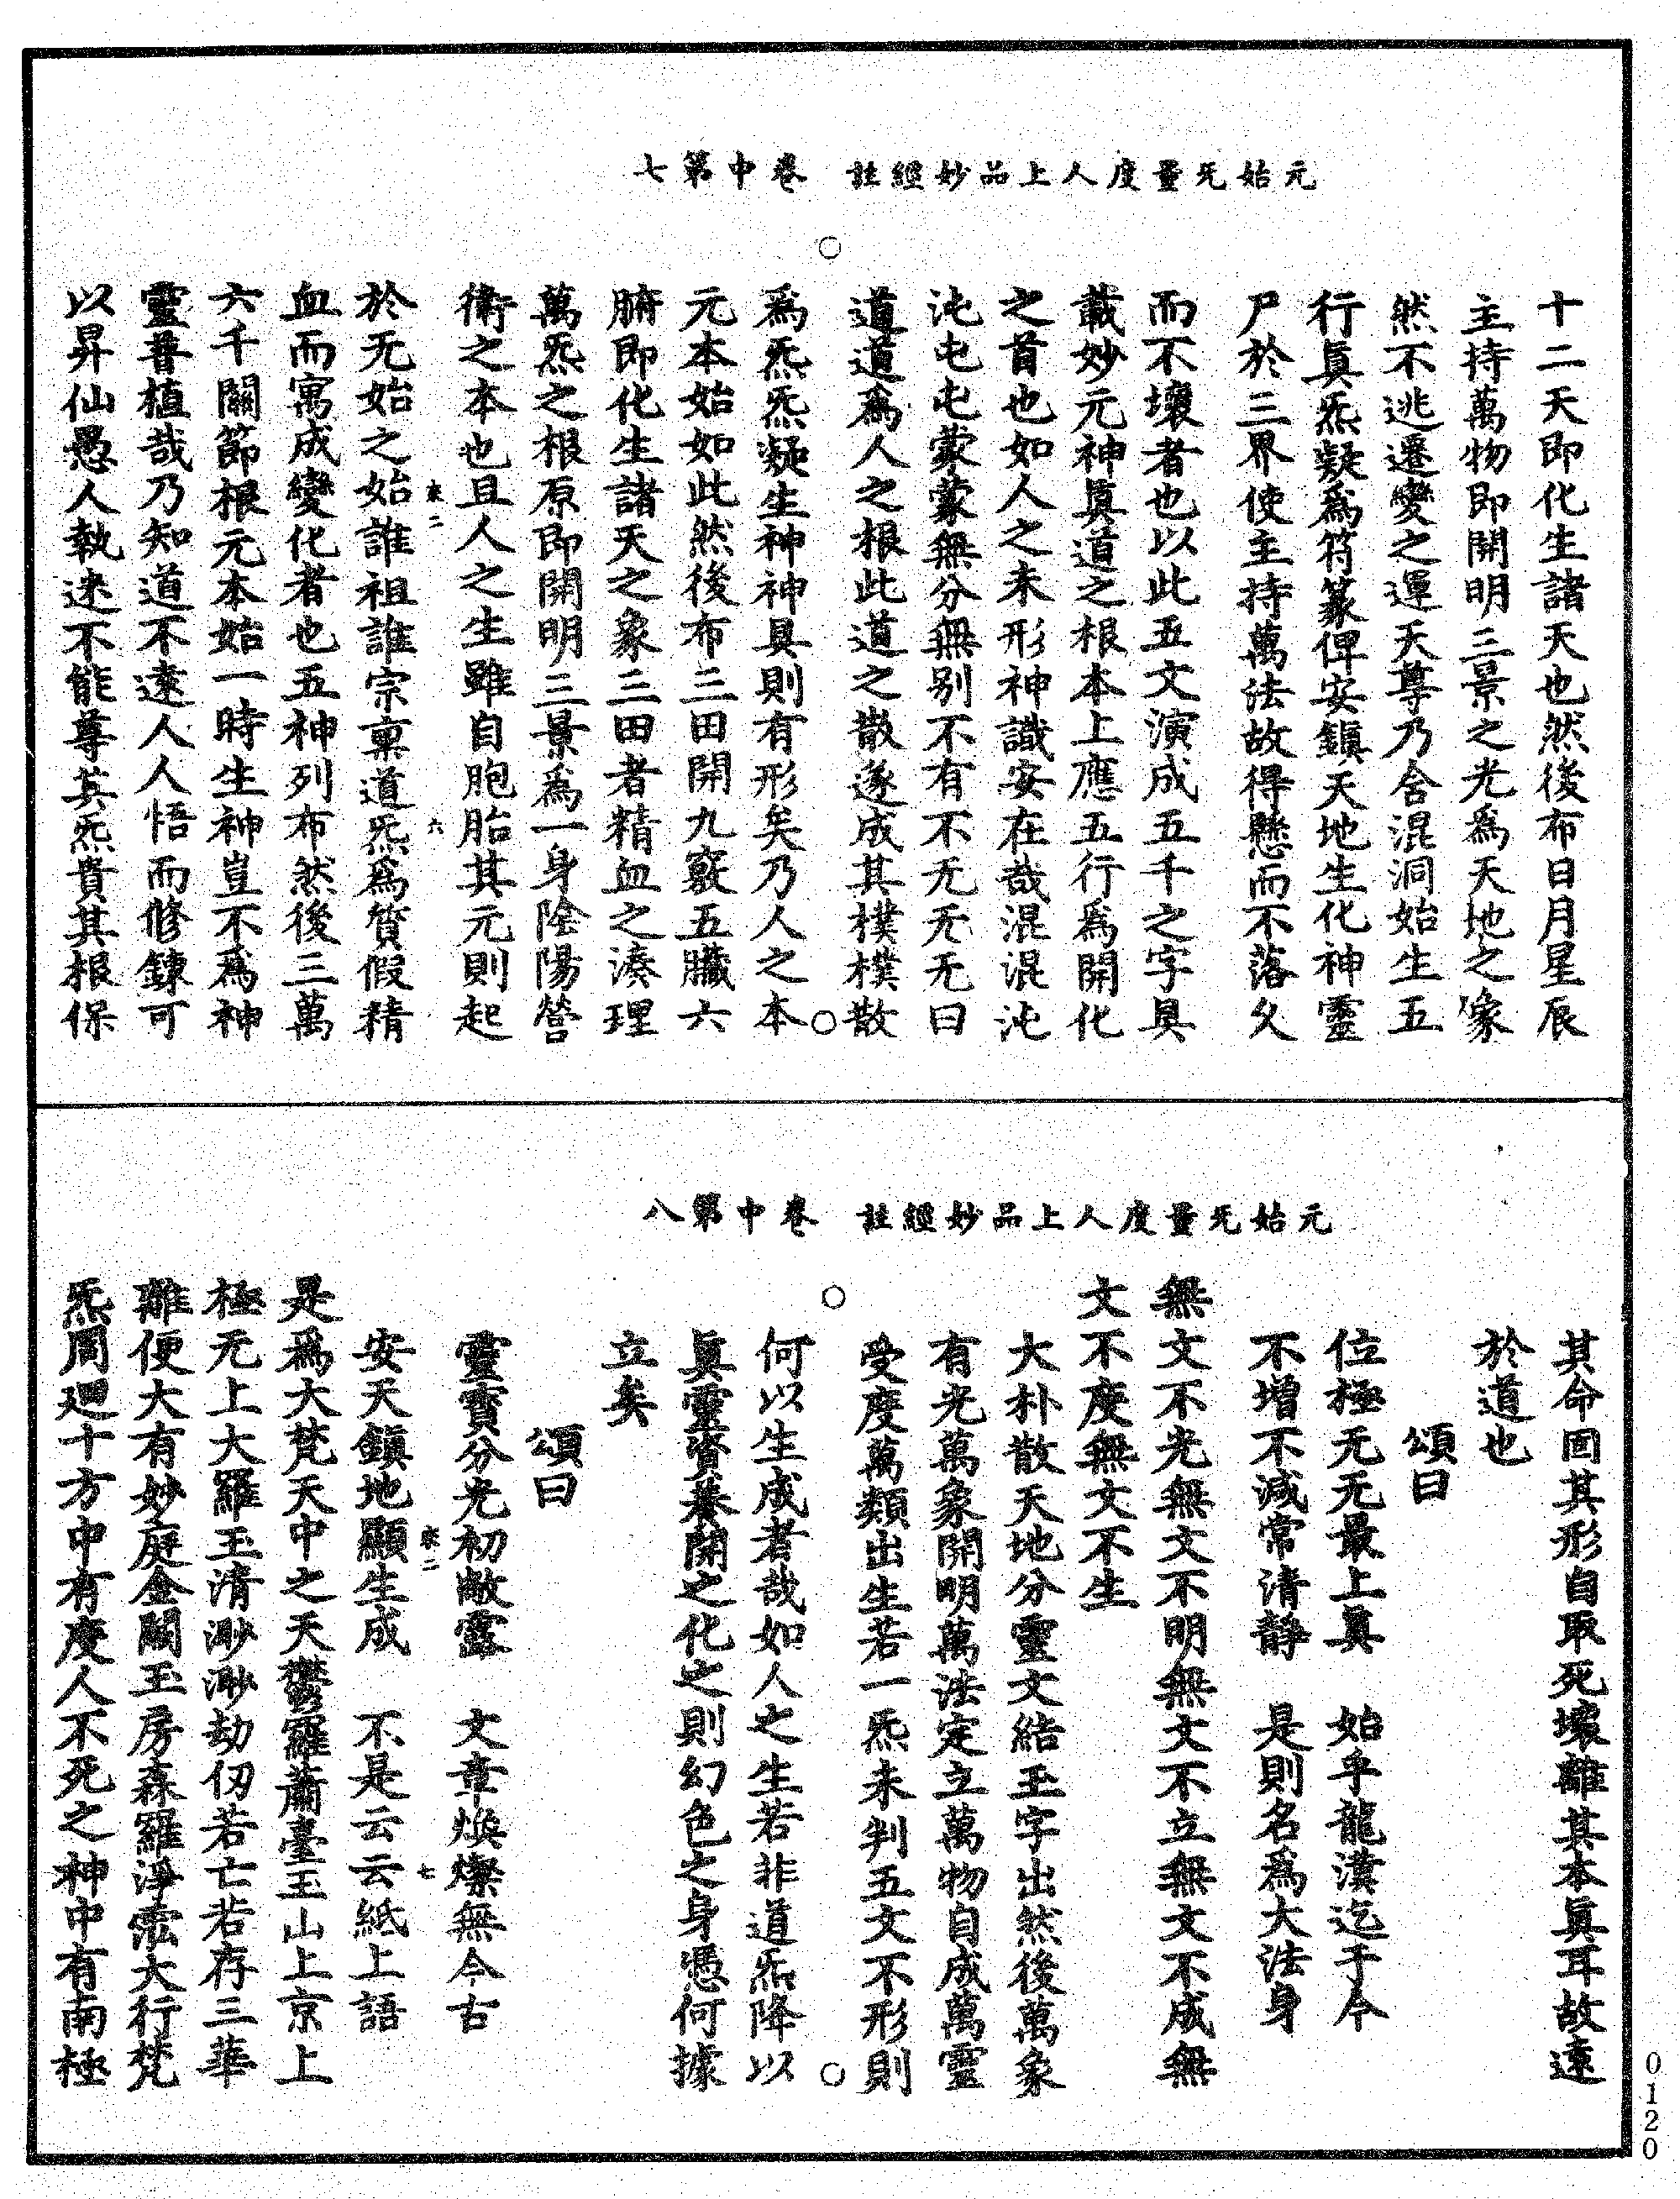 元始无量度人上品妙經註　卷中第七
十二天即化生諸天也然後布日月星辰
主持萬物即開明三景之光為天地之象
然不逃遷變之運天尊乃含混洞始生五
行眞炁凝為符篆俾安鎮天地生化神靈
尸於三界使主持萬法故得懸而不落久
而不壞者也以此五文演成五千之字具
載妙元神眞道之根本上應五行為開化
之首也如人之未形神識安在哉混混沌
沌屯屯蒙蒙無分無别不有不无无无曰
道道為人之根此道之散遂成其樸樸散
為炁炁凝生神神具則有形矣乃人之本
元本始如此然後布三田開九竅五臟六
腑即化生諸天之象三田者精血之湊理
萬炁之根原即開明三景為一身陰陽營
衛之本也且人之生雖自胞胎其元則起
於无始之始誰祖誰宗稟道炁為質假精
血而寓成變化者也五神列布然後三萬
六千關節根元本始一時生神豈不為神
靈普植哉乃知道不遠人人悟而修鍊可
以昇仙愚人執迷不能尊其炁貴其根保
元始无量度人上品妙經註　卷中第八
其命固其形自取死壞離其本眞耳故遠
於道也
頌曰
位極无无最上眞　始乎龍漢迄于今
不增不減常清靜　是則名為大法身
無文不光無文不明無文不立無文不成無
文不度無文不生
大朴散天地分靈文結玉字出然後萬象
有光萬象開明萬法定立萬物自成萬靈
受度萬類出生若一炁未判五文不形則
何以生成者哉如人之生若非道炁降以
眞靈資養開之化之則幻色之身憑何據
立矣
頌曰
靈寶分光初敞露　文章煥燦無今古
安天鎮地顯生成　不是云云紙上語
是為大梵天中之天鬱羅蕭臺玉山上京上
極无上大羅玉清渺渺劫仞若亡若存三華
離便大有妙庭金闕玉房森羅淨泓大行梵
炁周迴十方中有度人不死之神中有南極
0120